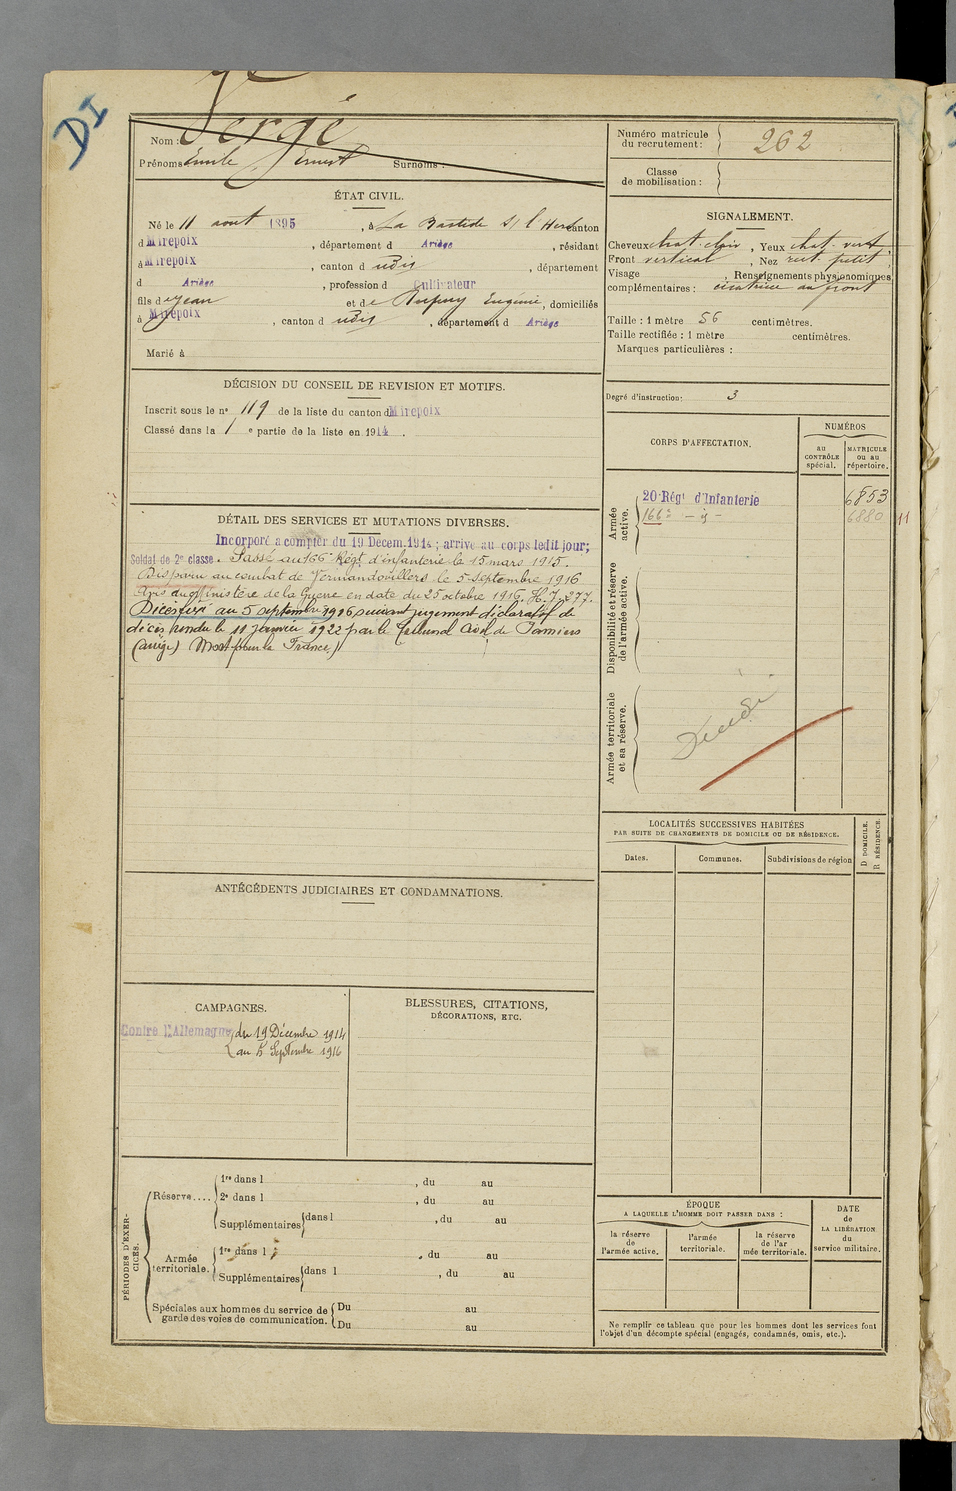 DI
Nom : Vergé
Prénoms Emile Ernest Surnoms :
Numéro matricule du recrutement : 262
Classe de mobilisation :
ÉTAT CIVIL.
Né le 11 aout 1895, à La Bastide s/ l'Hers canton
d Mirepoix, département d Ariège, résidant
à Mirepoix, canton d udis, département
d Ariège, profession d Cultivateur
fils de Jean et de Dupuy Eugénie, domiciliés
à Mirepoix, canton d udis, département d Ariège
Marié à
SIGNALEMENT.
Cheveux chat. clair, Yeux chat. vert
Front vertical, Nez rect. petit
Visage , Renseignements physionomiques
complémentaires : cicatrice au front
Taille : 1 mètre 56 centimètres.
Taille rectifiée : 1 mètre centimètres.
Marques particulières :
DÉCISION DU CONSEIL DE REVISION ET MOTIFS.
Inscrit sous le n° 119 de la liste du canton d Mirepoix
Classé dans la 1 e partie de la liste en 1914.
Degré d'instruction : 3
CORPS D'AFFECTATION.
NUMÉROS
au CONTRÔLE spécial.
MATRICULE ou au répertoire.
Armée active.
20 Régt d'Infanterie 6853
166e - d° - 6880 11
Disponibilité et réserve de l'armée active.
Armée territoriale et sa réserve.
Décédé
DÉTAIL DES SERVICES ET MUTATIONS DIVERSES.
Incorporé à compter du 19 Décem. 1914 ; arrivé au corps ledit jour;
Soldat de 2e classe. Passé au 166e Régt d'infanterie le 15 mars 1915.
Disparu au combat de Vermandovillers le 5 Septembre 1916
Avis du Ministère de la Guerre en date du 25 octobre 1916. H.J. 277.
Décès fixé au 5 septembre 1916 suivant jugement déclaratif de
décès rendu le 11 janvier 1922 par le Tribunal Civil de Pamiers
(Ariège) Mort pour la France)
LOCALITÉS SUCCESSIVES HABITÉES
PAR SUITE DE CHANGEMENTS DE DOMICILE OU DE RÉSIDENCE.
Dates.
Communes.
Subdivisions de région
D DOMICILE.
R RÉSIDENCE.
ANTÉCÉDENTS JUDICIAIRES ET CONDAMNATIONS.
CAMPAGNES.
Contre l'Allemagne du 19 Décembre 1914
au 5 Septembre 1916
BLESSURES, CITATIONS,
DÉCORATIONS, ETC.
PÉRIODES D'EXERCICES.
Réserve....
1re dans l , du au
2e dans l , du au
Supplémentaires dans l , du au
Armée territoriale.
1re dans l , du au
Supplémentaires dans l , du au
Spéciales aux hommes du service de
garde des voies de communication.
Du au
Du au
ÉPOQUE
A LAQUELLE L'HOMME DOIT PASSER DANS :
la réserve de l'armée active.
l'armée territoriale.
la réserve de l'armée territoriale.
DATE de LA LIBÉRATION du service militaire.
Ne remplir ce tableau que pour les hommes dont les services font
l'objet d'un décompte spécial (engagés, condamnés, omis, etc.).